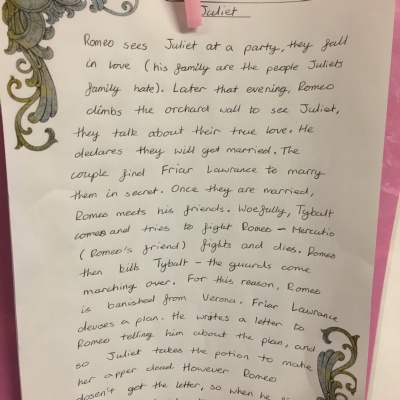 Juliet
Romeo sees Juliet at a party, they fall
in love (his family are the people Juliets
family hate). Later that evening, Romeo
climbs the orchard wall to see Juliet,
they talk about their true love. He
declares they will get married. The
couple find Friar Lawrance to marry
them in secret. Once they are married,
Romeo meets his friends. Woefully, Tybalt
comes and tries to fight Romeo - Mercutio
(Romeo's friend) fights and dies. Romeo
then kills Tybalt - the guards come
marching over. For this reason, Romeo
is banished from Verona. Friar Lawrance
devises a plan. He writes a letter to
Romeo telling him about the plan, and
so Juliet takes the potion to make
her apper dead. However Romeo
dosen't get the letter, so when he